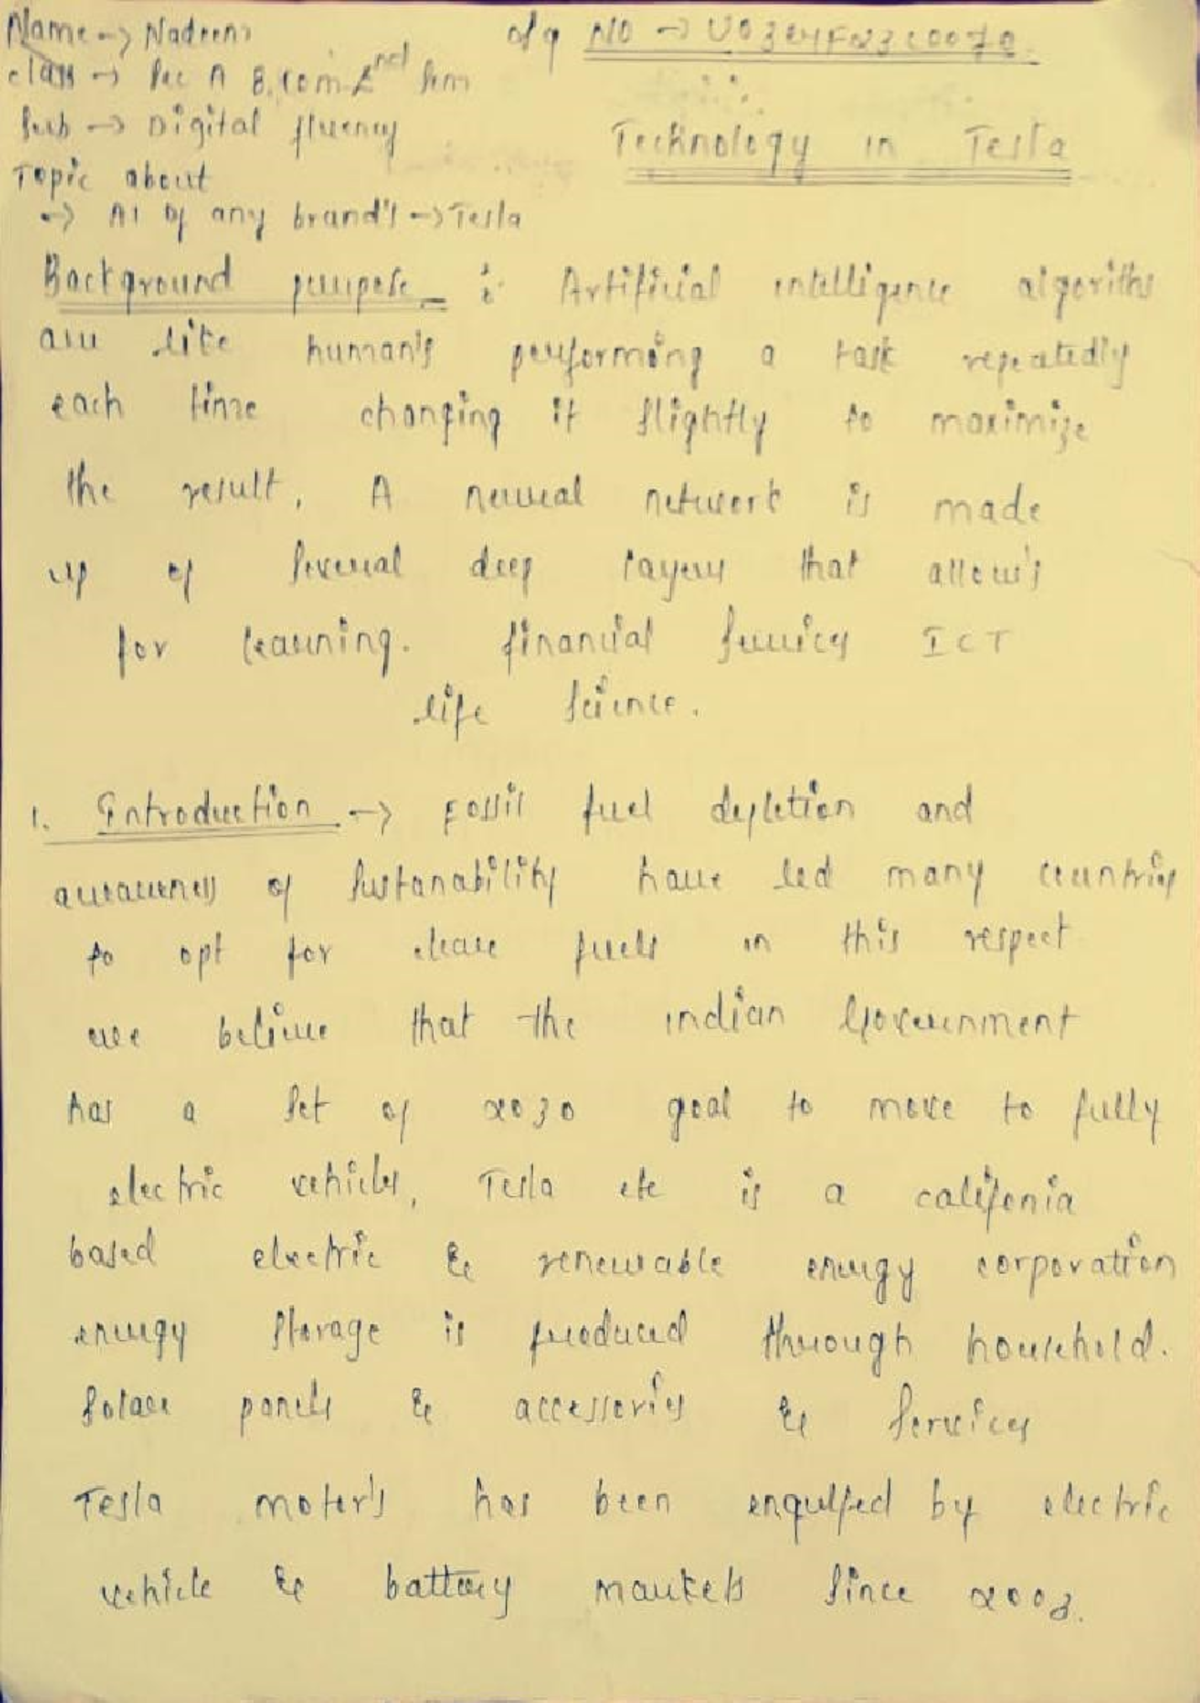 Name → Nadeem
of q NO → U03EY
class → Sec A B.com 2nd Sem
Sub → Digital fluency
Technology in Tesla
Topic about
→ AI of any brand's → Tesla
Background purpose : Artificial intelligence algoriths
are like human's performing a task repeatedly
each time changing it slightly to maximize
the result, A neural network is made
up of several deep layers that allow's
for learning. financial services ICT
life science.
1. Introduction → fossil fuel depletion and
awareness of sustanability have led many countries
to opt for clean fuels in this respect
we believe that the indian Government
has a set of 2030 goal to move to fully
electric vehicles, Tesla etc is a califonia
based electric & renewable energy corporation
energy storage is produced through household.
Solar panels & accessories & services
Tesla moter's has been engulfed by electric
vehicle & battery markets since 2003.